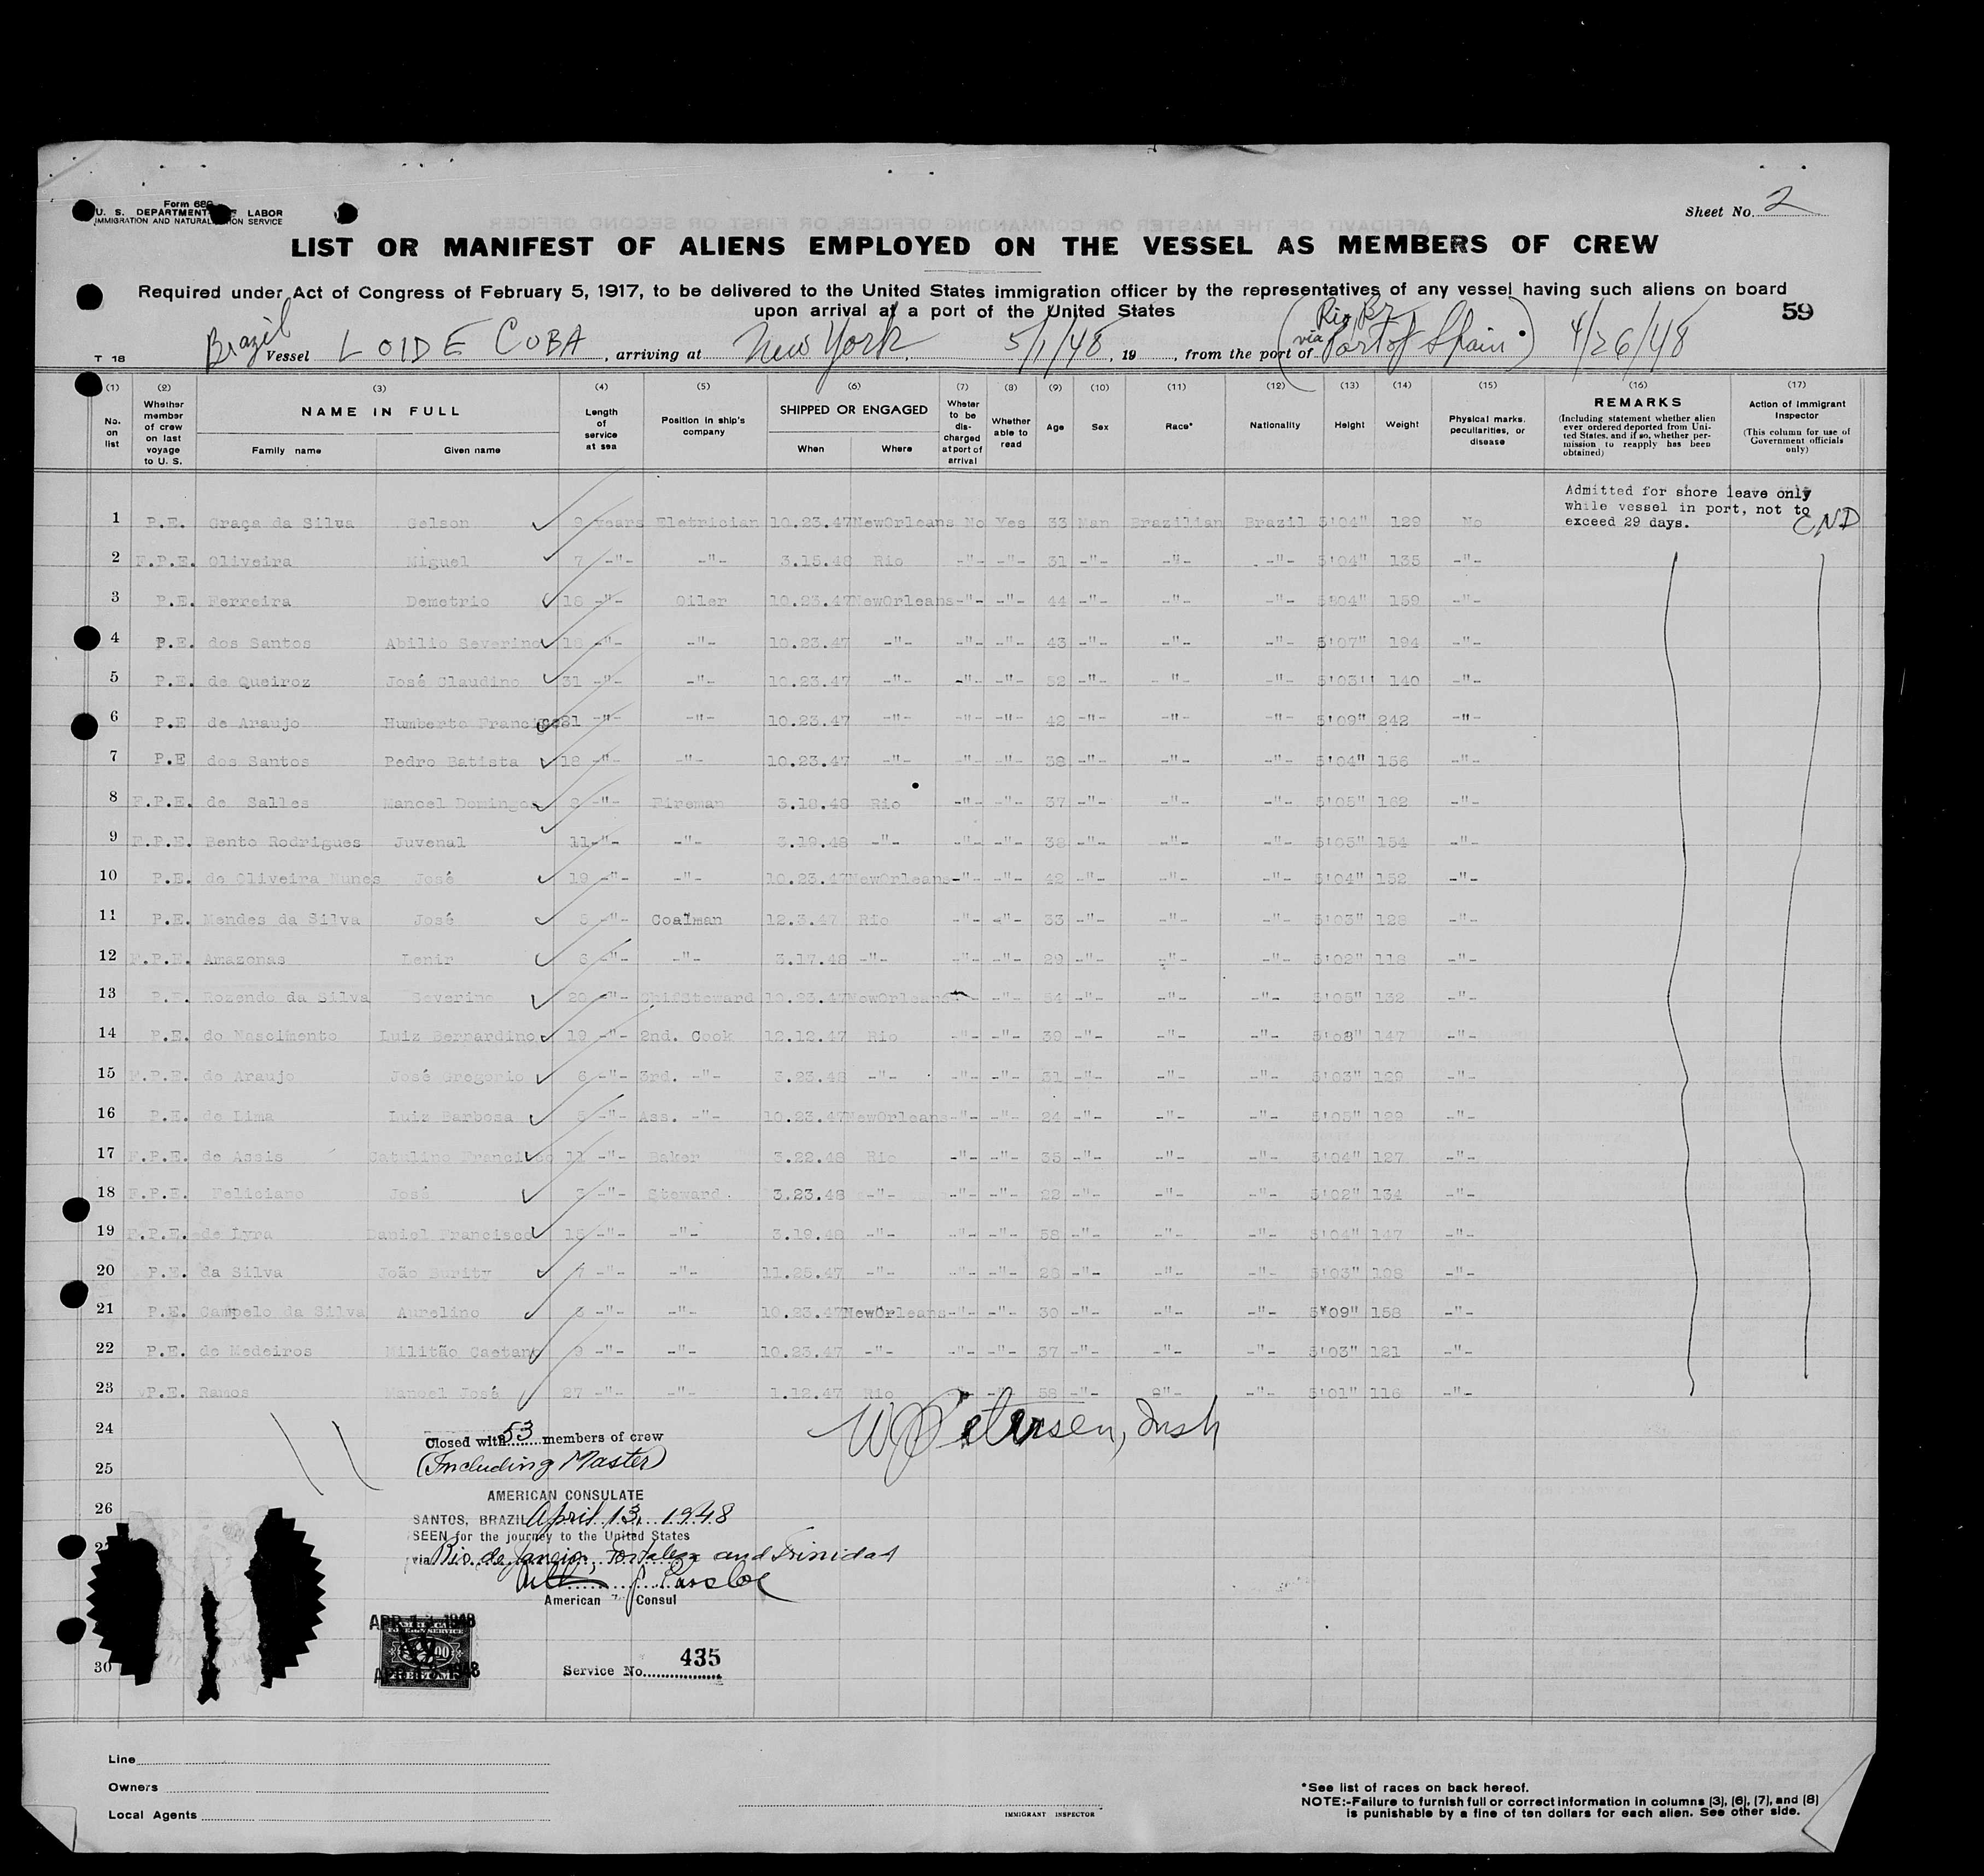 Form 689
U. S. DEPARTMENT OF LABOR
IMMIGRATION AND NATURALIZATION SERVICE
Sheet No. 2
LIST OR MANIFEST OF ALIENS EMPLOYED ON THE VESSEL AS MEMBERS OF CREW
Required under Act of Congress of February 5, 1917, to be delivered to the United States immigration officer by the representatives of any vessel having such aliens on board
upon arrival at a port of the United States
59
T 18 Brazil Vessel LOIDE CUBA, arriving at New York, 5/1/48, 19, from the port of (Rio, Br via Port of Spain) 4/26/48
(1) (2) (3) (4) (5) (6) (7) (8) (9) (10) (11) (12) (13) (14) (15) (16) (17)
No. on list
Whether member of crew on last voyage to U. S.
NAME IN FULL
Family name Given name
Length of service at sea
Position in ship's company
SHIPPED OR ENGAGED
When Where
Wheter to be discharged at port of arrival
Whether able to read
Age Sex Race* Nationality Height Weight
Physical marks, peculiarities, or disease
REMARKS
(Including statement whether alien ever ordered deported from United States, and if so, whether permission to reapply has been obtained)
Action of Immigrant Inspector
(This column for use of Government officials only)
Admitted for shore leave only
while vessel in port, not to
exceed 29 days.
1 P.E. Graça da Silva Gelson 9 years Eletrician 10.23.47 NewOrleans No Yes 33 Man Brazilian Brazil 5'04" 129 No
2 F.P.E. Oliveira Miguel 7 -"- -"- 3.15.48 Rio -"- -"- 31 -"- -"- -"- 5'04" 135 -"-
3 P.E. Ferreira Demetrio 16 -"- Oiler 10.23.47 NewOrleans -"- -"- 44 -"- -"- -"- 5'04" 159 -"-
4 P.E. dos Santos Abilio Severino 18 -"- -"- 10.23.47 -"- -"- -"- 43 -"- -"- -"- 5'07" 194 -"-
5 P.E. de Queiroz José Claudino 31 -"- -"- 10.23.47 -"- -"- -"- 52 -"- -"- -"- 5'03" 140 -"-
6 P.E de Araujo Humberto Francisco 21 -"- -"- 10.23.47 -"- -"- -"- 42 -"- -"- -"- 5'09" 242 -"-
7 P.E dos Santos Pedro Batista 18 -"- -"- 10.23.47 -"- -"- -"- 38 -"- -"- -"- 5'04" 156 -"-
8 F.P.E. de Salles Manoel Domingos 9 -"- Fireman 3.18.48 Rio -"- -"- 37 -"- -"- -"- 5'05" 162 -"-
9 F.P.E. Bento Rodrigues Juvenal 11 -"- -"- 3.19.48 -"- -"- -"- 38 -"- -"- -"- 5'05" 154 -"-
10 P.E. de Oliveira Nunes José 19 -"- -"- 10.23.47 NewOrleans -"- -"- 42 -"- -"- -"- 5'04" 152 -"-
11 P.E. Mendes da Silva José 5 -"- Coalman 12.3.47 Rio -"- -"- 33 -"- -"- -"- 5'03" 128 -"-
12 F.P.E. Amazonas Lenir 6 -"- -"- 3.17.48 -"- -"- -"- 29 -"- -"- -"- 5'02" 118 -"-
13 P.E. Rozendo da Silva Severino 20 -"- ChifSteward 10.23.47 NewOrleans -"- 54 -"- -"- -"- 5'05" 132 -"-
14 P.E. do Nascimento Luiz Bernardino 19 -"- 2nd. Cook 12.12.47 Rio -"- -"- 39 -"- -"- -"- 5'08" 147 -"-
15 F.P.E. de Araujo José Gregorio 6 -"- 3rd. -"- 3.23.48 -"- -"- -"- 31 -"- -"- -"- 5'03" 129 -"-
16 P.E. de Lima Luiz Barbosa 5 -"- Ass. -"- 10.23.47 NewOrleans -"- -"- 24 -"- -"- -"- 5'05" 129 -"-
17 F.P.E. de Assis Catulino Francisco 11 -"- Baker 3.22.48 Rio -"- -"- 35 -"- -"- -"- 5'04" 127 -"-
18 F.P.E. Feliciano José 3 -"- Steward 3.23.48 -"- -"- -"- 22 -"- -"- -"- 5'02" 134 -"-
19 F.P.E. de Lyra Daniel Francisco 15 -"- -"- 3.19.48 -"- -"- -"- 58 -"- -"- -"- 5'04" 147 -"-
20 P.E. da Silva João Surity 7 -"- -"- 11.25.47 -"- -"- -"- 28 -"- -"- -"- 5'03" 198 -"-
21 P.E. Campelo da Silva Aurelino 3 -"- -"- 10.23.47 NewOrleans -"- -"- 30 -"- -"- -"- 5'09" 158 -"-
22 P.E. de Medeiros Militão Caetano 9 -"- -"- 10.23.47 -"- -"- -"- 37 -"- -"- -"- 5'03" 121 -"-
23 P.E. Ramos Manoel José 27 -"- -"- 1.12.47 Rio -"- -"- 58 -"- -"- -"- 5'01" 116 -"-
24
25
26
30
W Petersen, Insp
Closed with 53 members of crew
(Including Master)
AMERICAN CONSULATE
SANTOS, BRAZIL April 13, 1948
SEEN for the journey to the United States
via Rio de Janeiro, Fortaleza and Trinidad
American Consul
APR 13 1948
APR 13 1948
Service No. 435
Line
Owners
Local Agents
IMMIGRANT INSPECTOR
*See list of races on back hereof.
NOTE:-Failure to furnish full or correct information in columns (3), (6), (7), and (8)
is punishable by a fine of ten dollars for each alien. See other side.